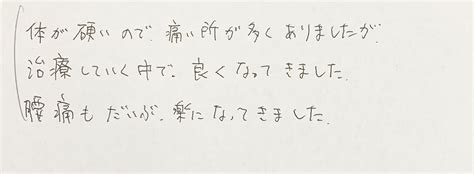 体が硬いので、痛い所が多くありましたが、
治療していく中で、良くなってきました。
腰痛もだいぶ、楽になってきました。